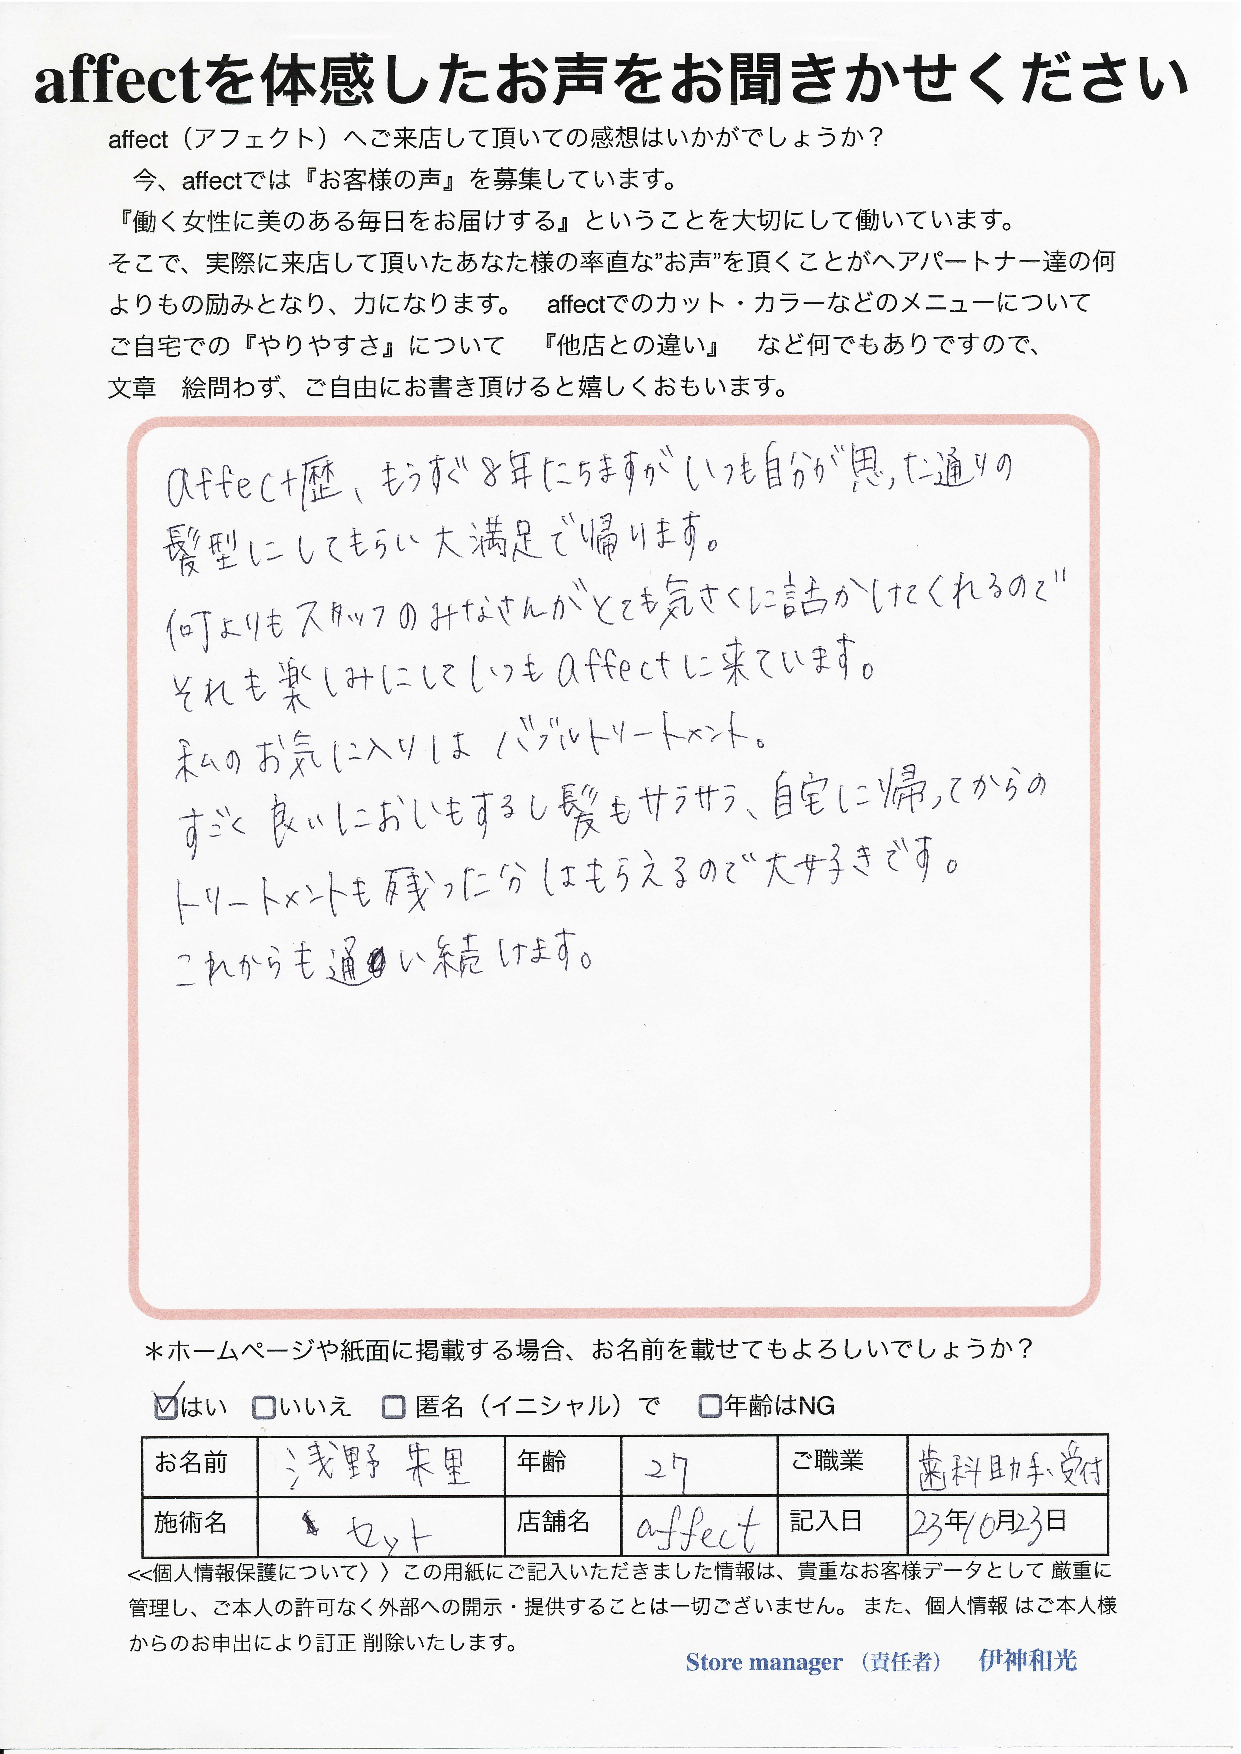 affectを体感したお声をお聞きかせください
affect（アフェクト）へご来店して頂いての感想はいかがでしょうか？
今、affectでは『お客様の声』を募集しています。
『働く女性に美のある毎日をお届けする』ということを大切にして働いています。
そこで、実際に来店して頂いたあなた様の率直な”お声”を頂くことがヘアパートナー達の何
よりもの励みとなり、力になります。　affectでのカット・カラーなどのメニューについて
ご自宅での『やりやすさ』について　『他店との違い』　など何でもありですので、
文章　絵問わず、ご自由にお書き頂けると嬉しくおもいます。
affect歴、もうすぐ8年にちますがいつも自分が思った通りの
髪型にしてもらい大満足で帰ります。
何よりもスタッフのみなさんがとても気さくに話かけてくれるので
それも楽しみにしていつもaffectに来ています。
私のお気に入りはバブルトリートメント。
すごく良いにおいもするし髪もサラサラ、自宅に帰ってからの
トリートメントも残った分はもらえるので大好きです。
これからも通い続けます。
＊ホームページや紙面に掲載する場合、お名前を載せてもよろしいでしょうか？
はい　いいえ　匿名（イニシャル）で　年齢はNG
お名前 浅野 朱里 年齢 27 ご職業 歯科助手、受付
施術名 セット 店舗名 affect 記入日 23年10月23日
<<個人情報保護について〉〉この用紙にご記入いただきました情報は、貴重なお客様データとして 厳重に
管理し、ご本人の許可なく外部への開示・提供することは一切ございません。 また、個人情報 はご本人様
からのお申出により訂正 削除いたします。
Store manager （責任者）　伊神和光